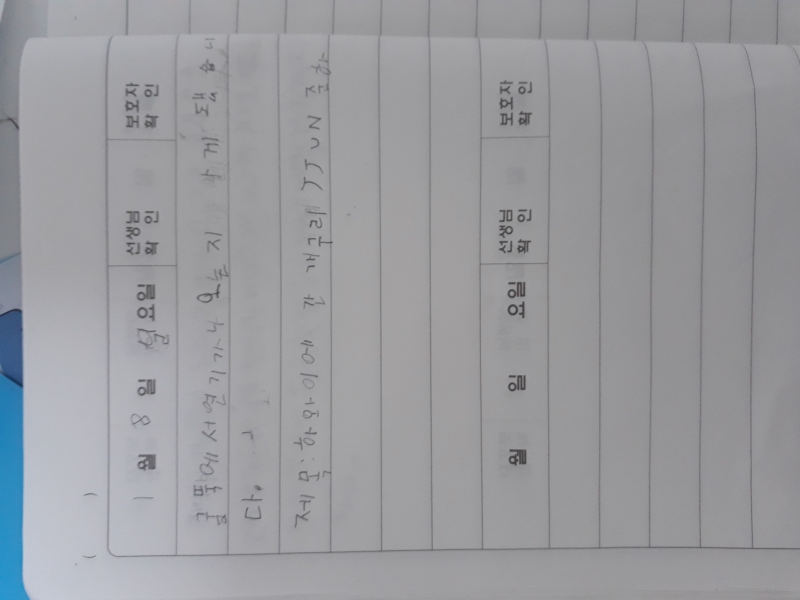 1월 8일 월요일 선생님 확인 보호자 확인
굴뚝에서 연기가 나오는지 나게 됐습니
다.
제목: 하와이에 간 개구리 JJUN 준하
월 일 요일 선생님 확인 보호자 확인